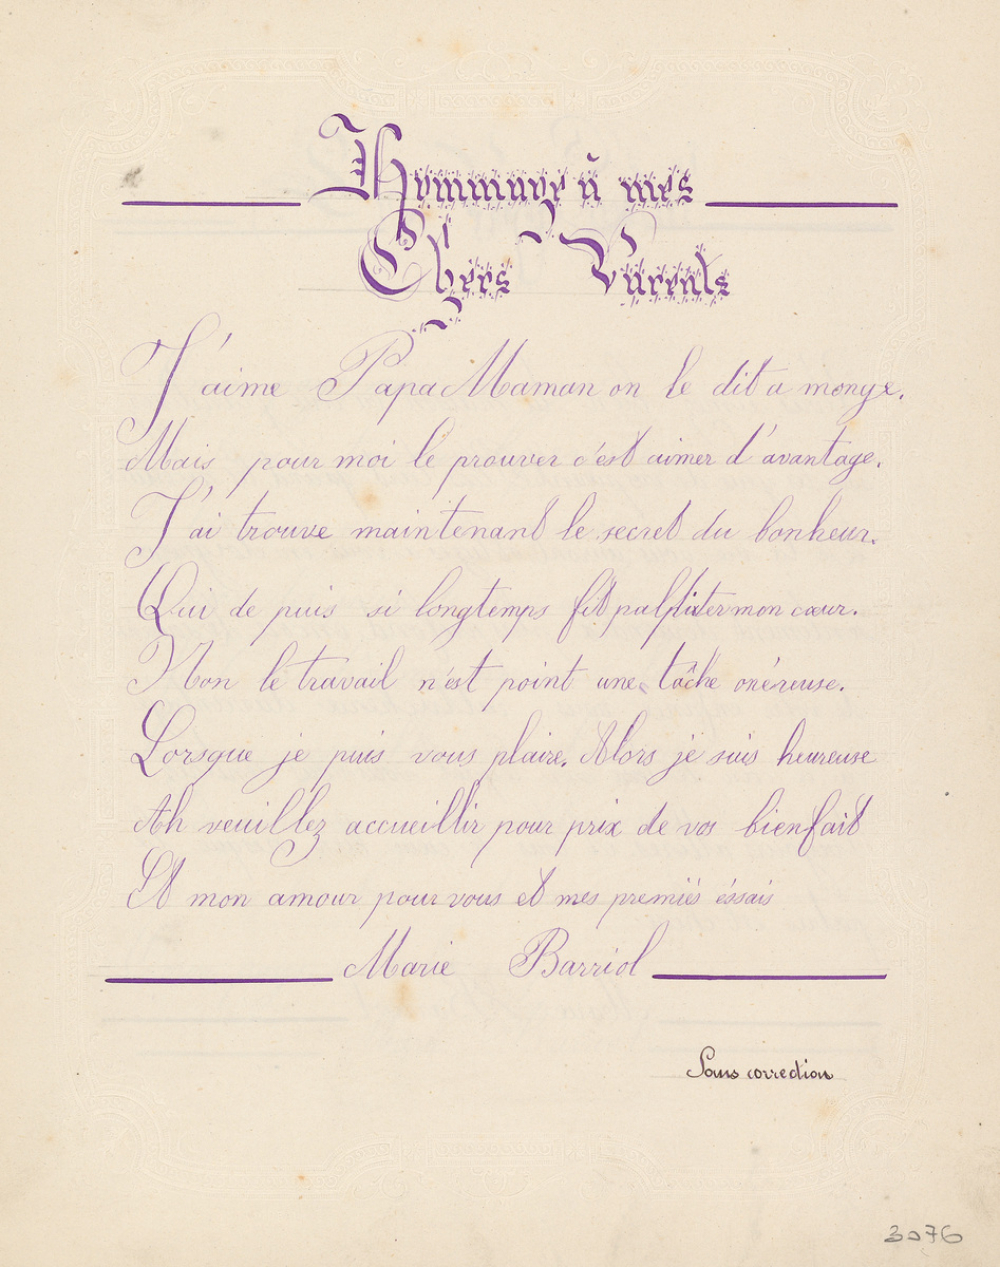 Hommage à mes
Chers Parents
J'aime Papa Maman on le dit a monge.
Mais pour moi le prouver c'est aimer d'avantage.
J'ai trouve maintenant le secret du bonheur.
Qui de puis si longtemps fit palpiter mon cœur.
Non le travail n'est point une tâche onéreuse.
Lorsque je puis vous plaire. Alors je suis heureuse
Ah veuillez accueillir pour prix de vos bienfait
Et mon amour pour vous et mes premiés éssais
Marie Barriol
Sans correction
3076